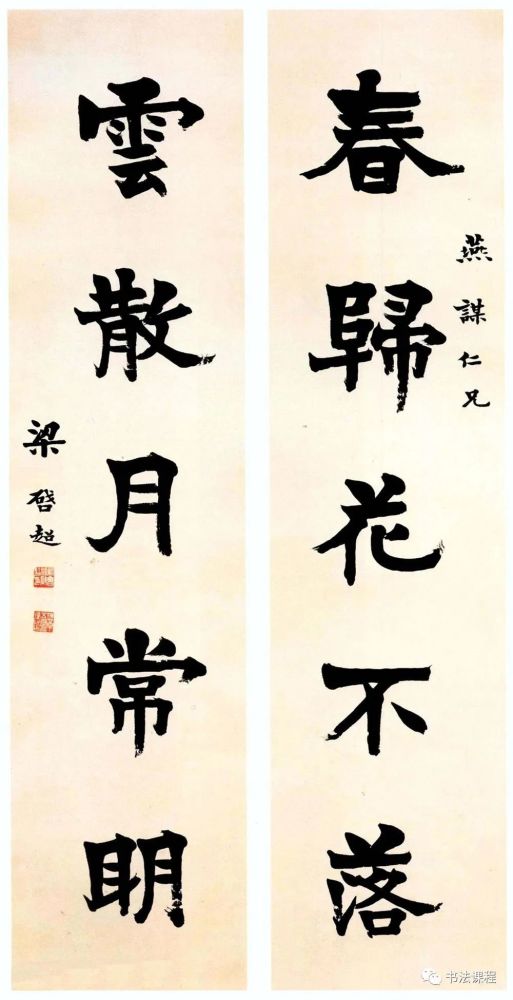 春歸花不落
燕謀仁兄
雲散月常明
梁啓超
书法课程